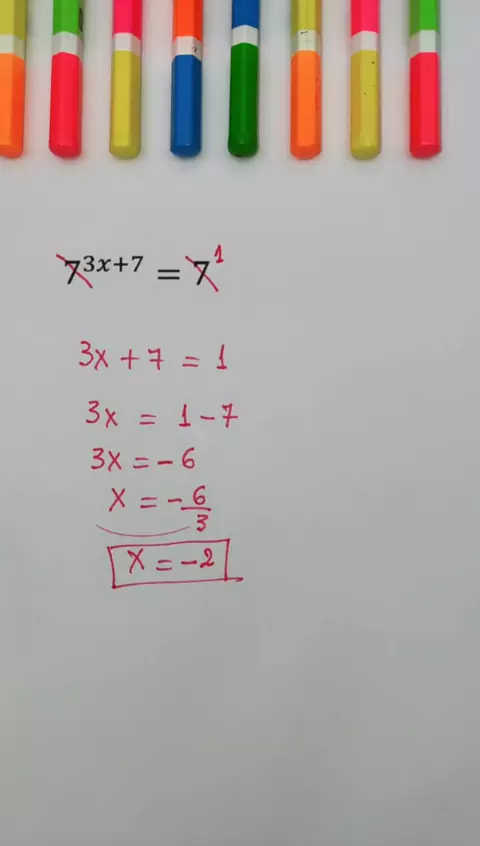 7^{3x+7} = 7^1
3x + 7 = 1
3x = 1 - 7
3x = -6
x = -6/3
x = -2